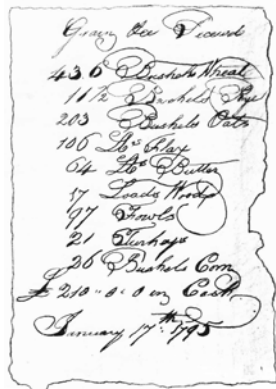 Grain &c Received
436 Bushels Wheat
11 1/2 Bushels Rye
203 Bushels Oats
106 lbs Flax
64 lbs Butter
17 Loads Wood
97 Fowls
21 Turkeys
26 Bushels Corn
£ 210 " 0 " 0 in Cash
January 17th 1795